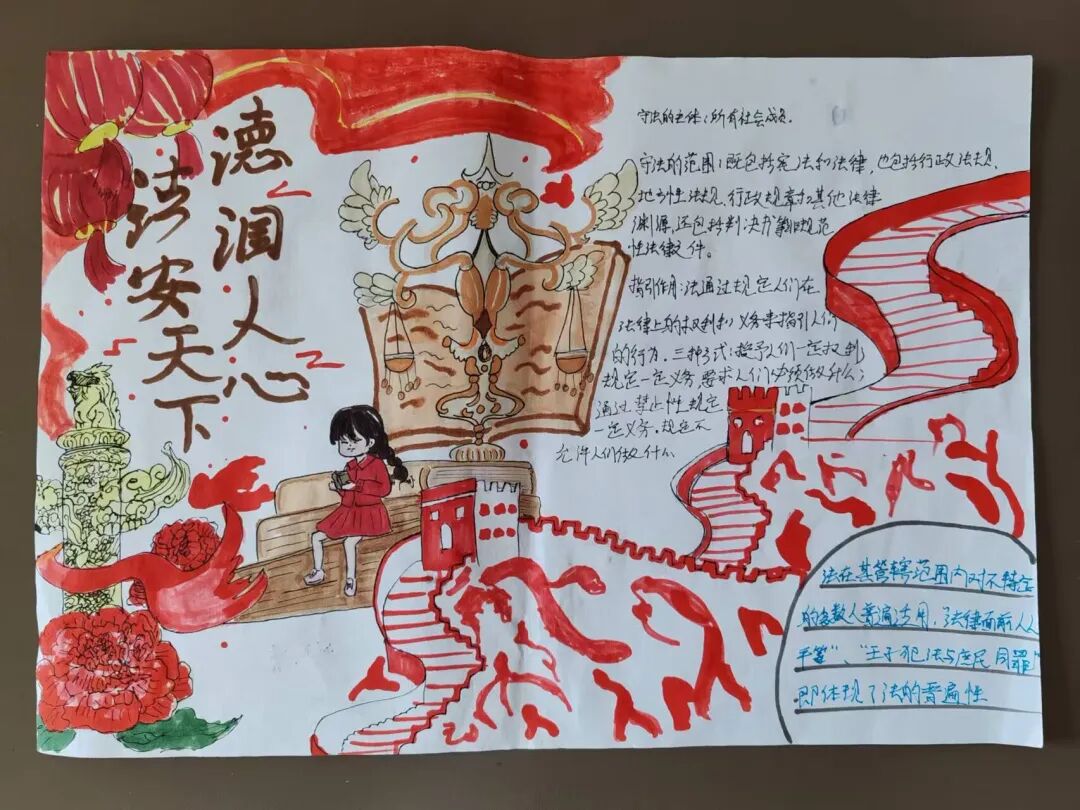 德润人心
法安天下
守法的主体：所有社会成员.
守法的范围：既包括宪法和法律，也包括行政法规、
地方性法规、行政规章和其他法律
渊源，还包括判决书等非规范
性法律文件。
指引作用：法通过规定人们在
法律上的权利和义务来指引人们
的行为。三种方式：授予人们一定权利；
规定一定义务，要求人们必须做什么；
通过禁止性规定
一定义务，规定不
允许人们做什么
法在其管辖范围内对不特定
的多数人普遍适用，“法律面前人人
平等”、“王子犯法与庶民同罪”
即体现了法的普遍性